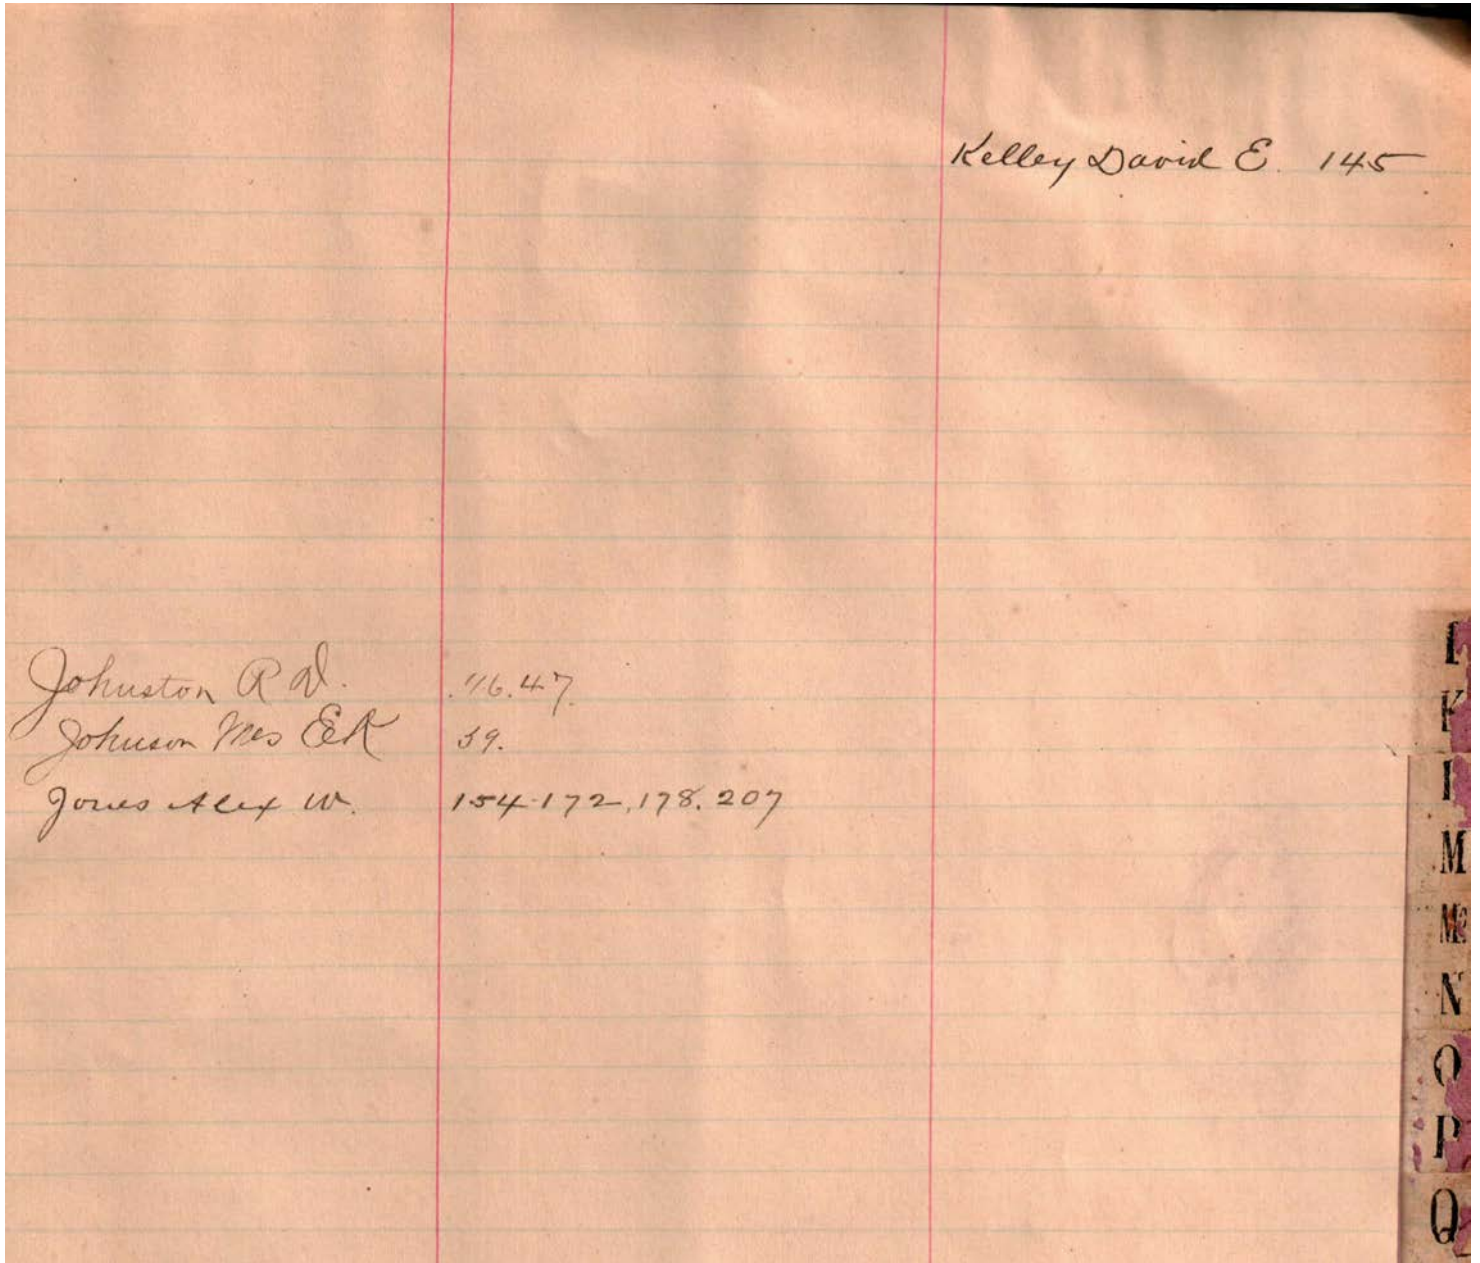 Kelley David E. 145
Johnston R D. 46.47.
Johnson Mrs E R 39.
Jones Alex W. 154.172,178.207
K
M
Mc
N
O
P
Q